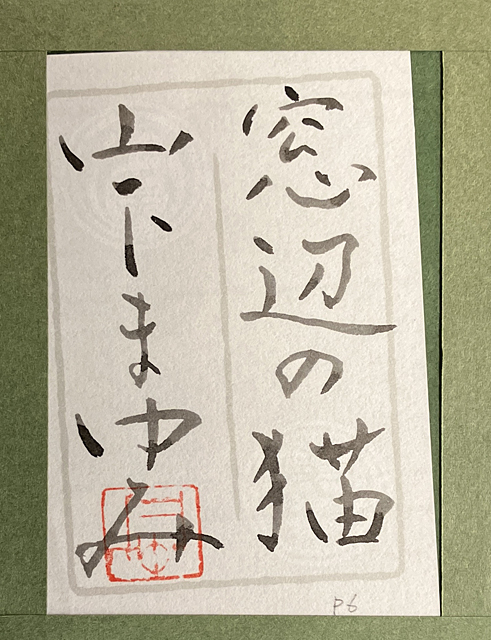 窓辺の猫
山下まゆみ
P6